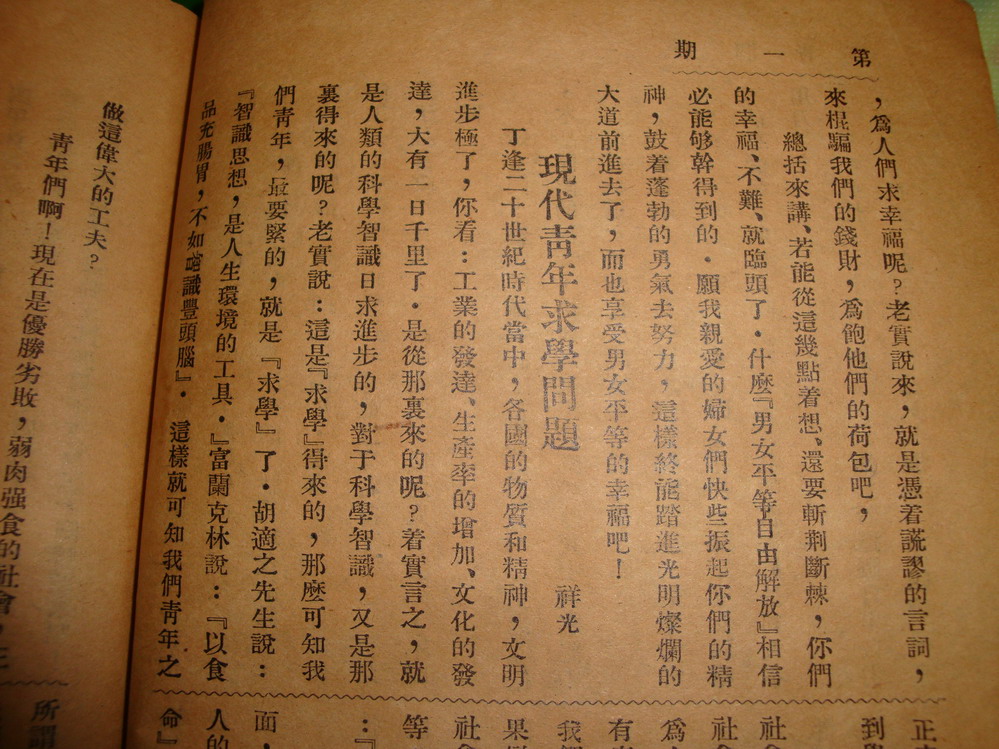 第一期
，爲人們求幸福呢？老實說來，就是憑着謊謬的言詞，
來棍騙我們的錢財，爲飽他們的荷包吧，
總括來講、若能從這幾點着想、還要斬荆斷棘，你們
的幸福、不難、就臨頭了．什麼『男女平等自由解放』相信
必能够幹得到的．願我親愛的婦女們快些振起你們的精
神，鼓着蓬勃的勇氣去努力，這樣終能踏進光明燦爛的
大道前進去了，而也享受男女平等的幸福吧！
現代靑年求學問題
祥光
丁逢二十世紀時代當中，各國的物質和精神，文明
進步極了，你看：工業的發達、生產率的增加、文化的發
達，大有一日千里了．是從那裏來的呢？着實言之，就
是人類的科學智識日求進步的，對于科學智識，又是那
裏得來的呢？老實說：這是『求學』得來的，那麼可知我
們靑年，最要緊的，就是『求學』了．胡適之先生說：
『智識思想，是人生環境的工具．』富蘭克林說：『以食
品充腸胃，不如識豐頭腦』．這樣就可知我們靑年之
做這偉大的工夫？
靑年們啊！現在是優勝劣敗，弱肉强食的社會，
正
到
社
社會
爲
有
我
果
社會
等
：『
面，
人的
命』
所謂